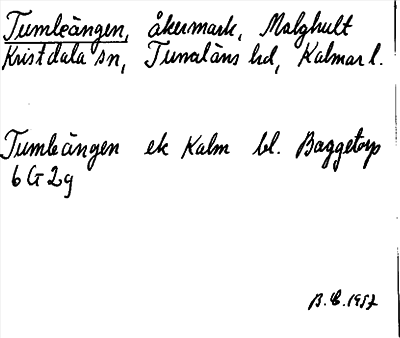 Tumleängen, åkermark, Malghult
Kristdala sn, Tunaläns hd, Kalmar l.
Tumleängen ek Kalm bl. Baggetorp
6 G 2 g
B.E. 1957